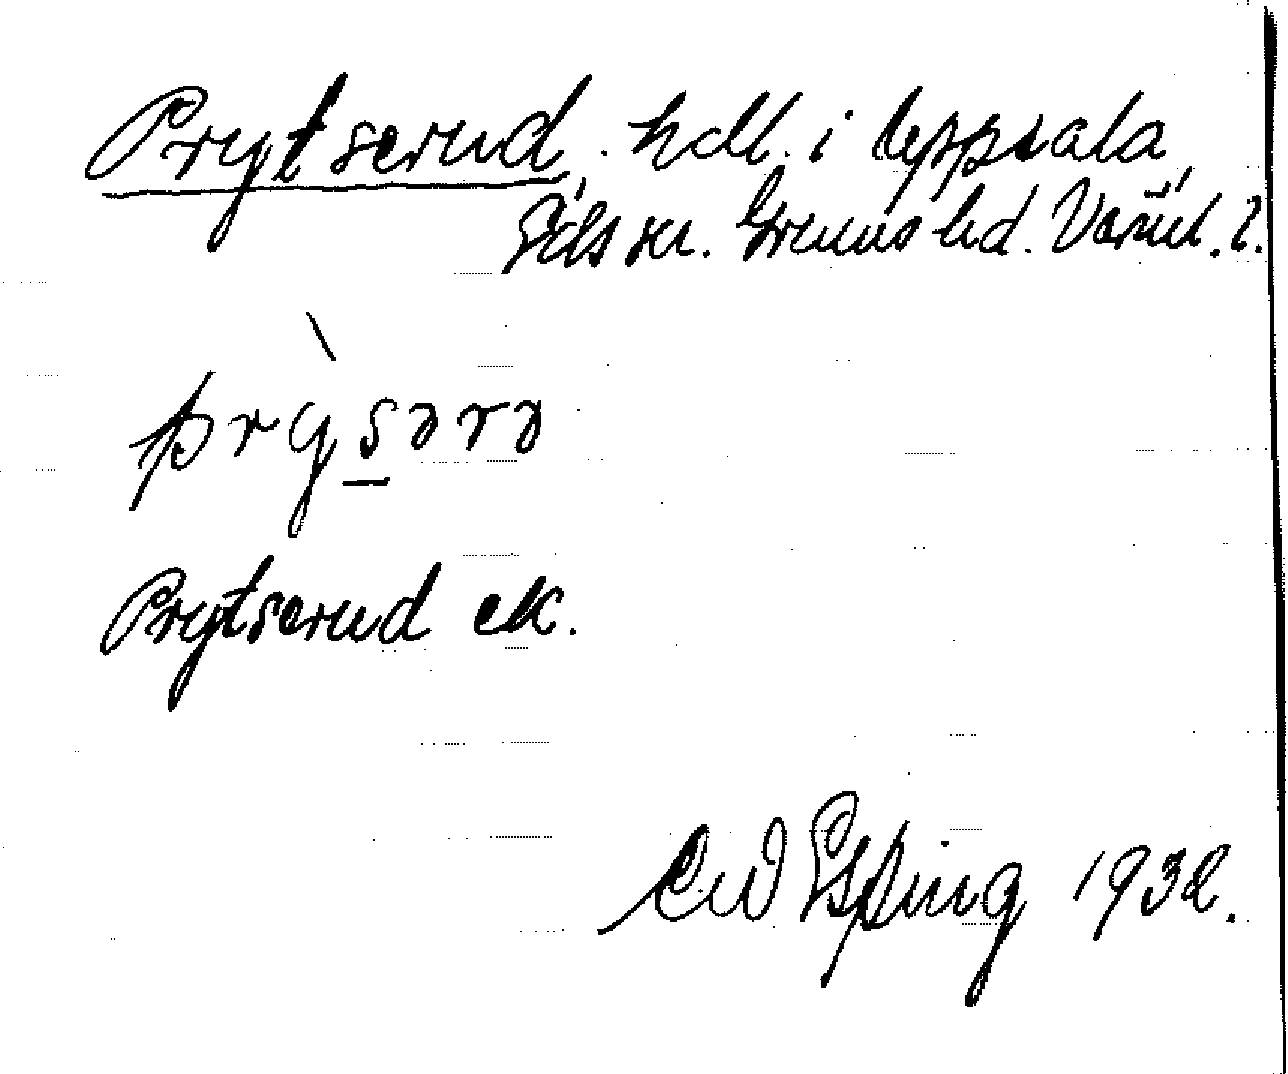 Prytserud. hdl. i Uppsala,
Eds sn. Grums hd. Värml. l.
prỳsərə
Prytserud ek.
CW Esping 1932.